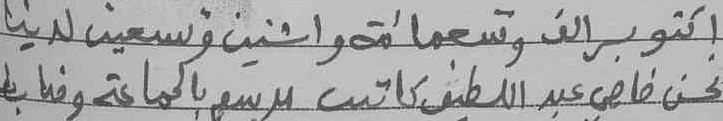 اكتوبر الف وتسعمائة واثنين وتسعين لدينا
نحن فاضي عبد اللطيف كاتب مرسم بالجماعة وضابط